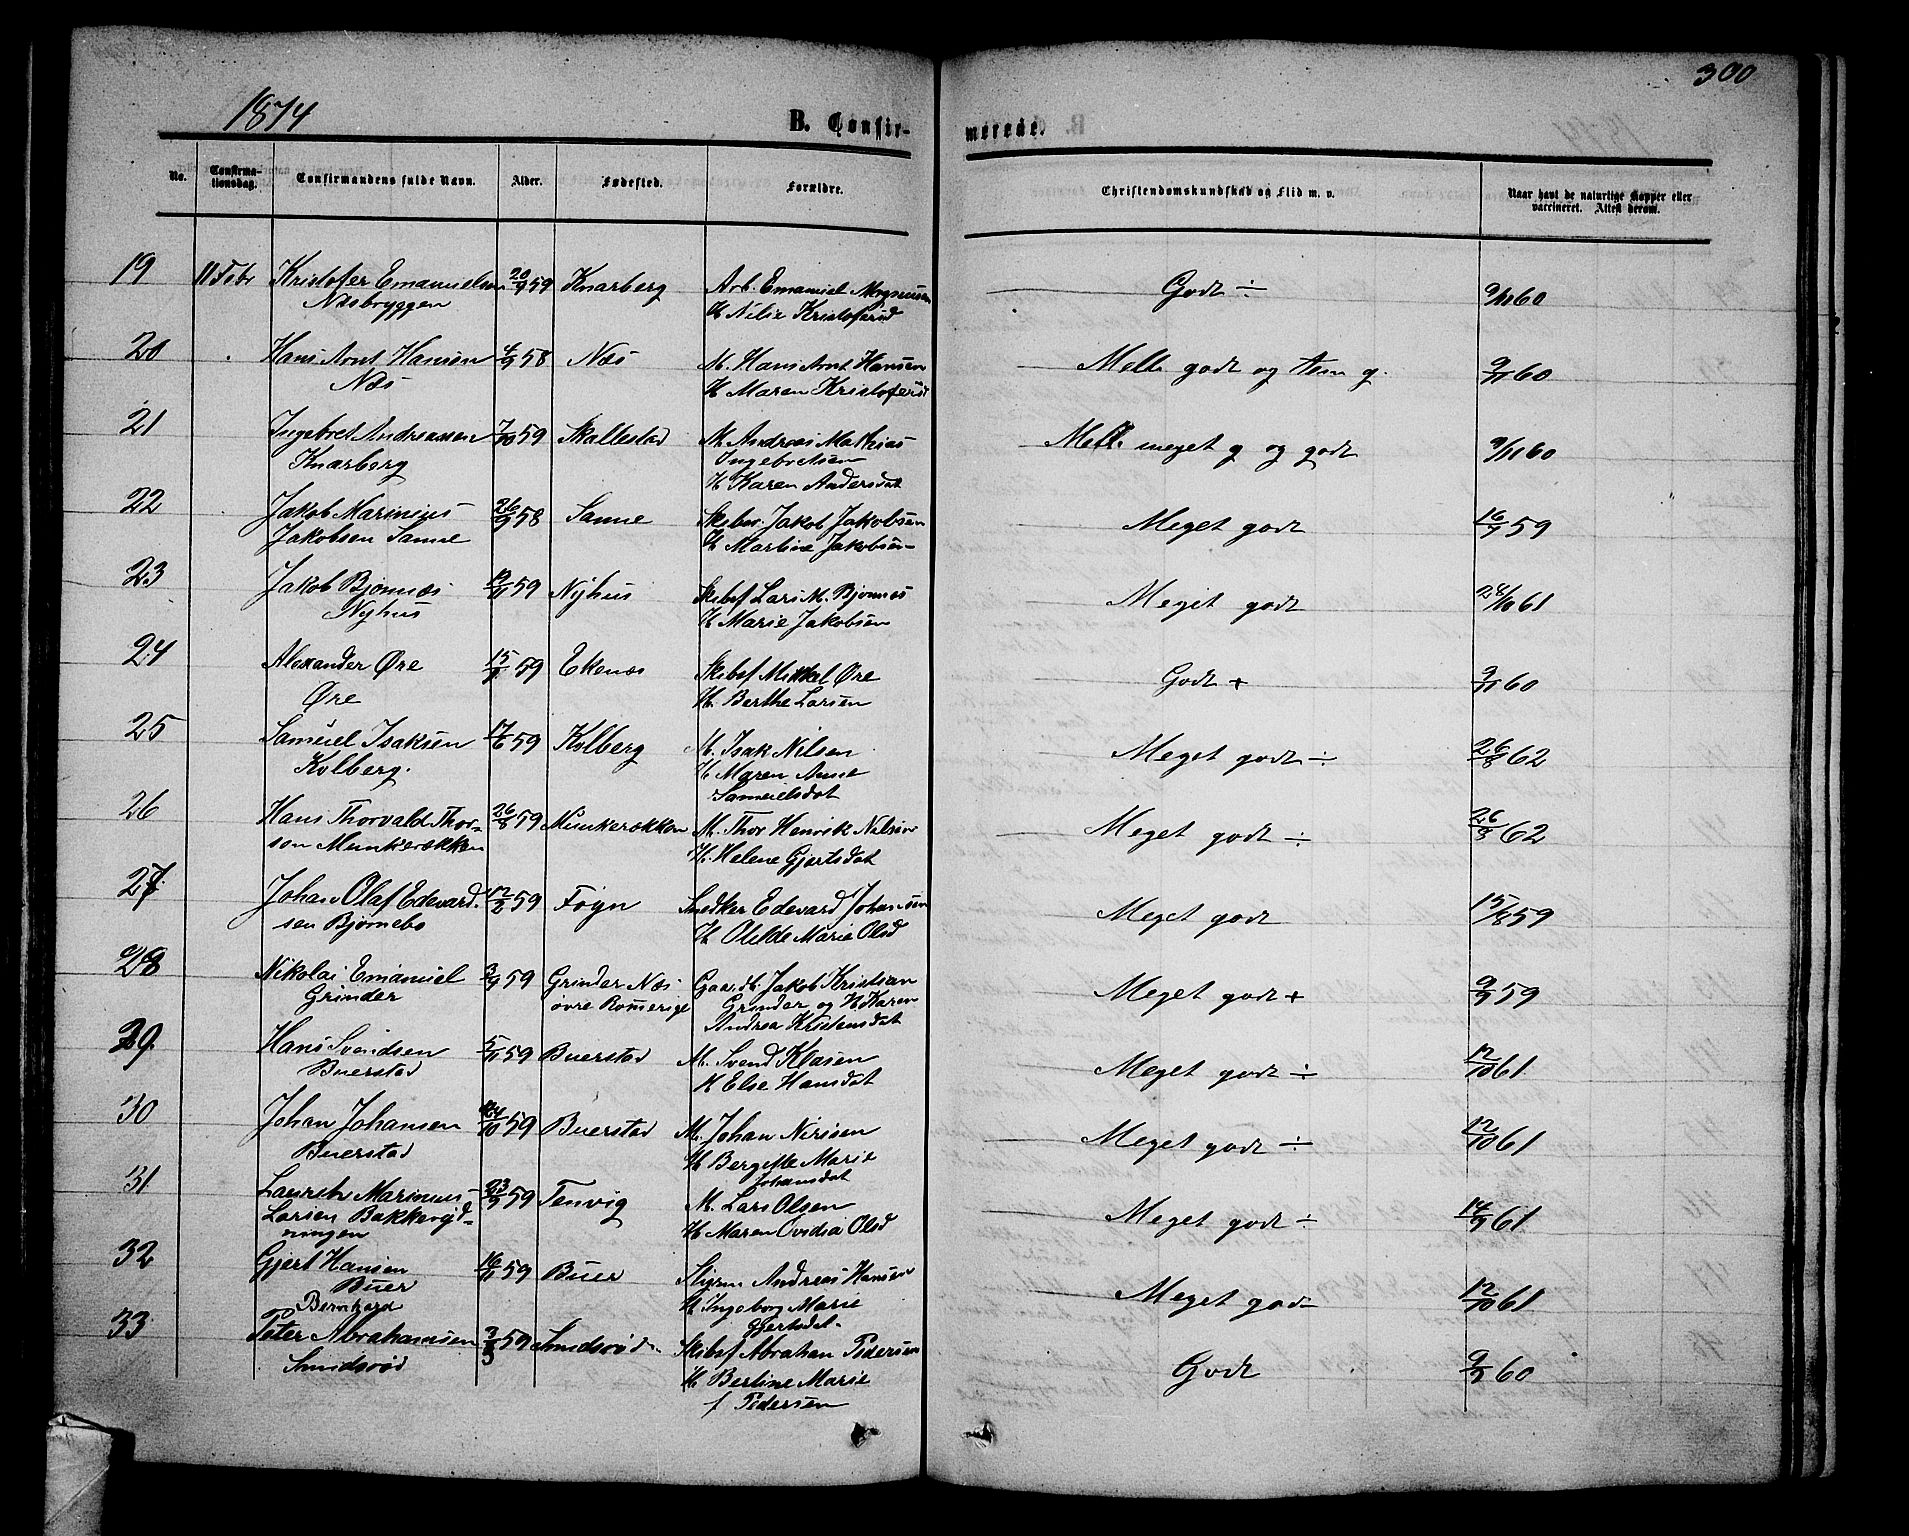 1874
300
B. Confir-
merede.
No.
Confirma-
tionsdag.
Confirmandens fulde Navn.
Alder.
Fødested.
Forældre.
Christendomskundskab og Flid m. v.
Naar havt de naturlige Kopper eller
vaccineret. Attest derom.
19 11 Febr Kristofer Emanuelsen 20/9 59 Knarberg Arb. Emanuel Mogensen Godt ÷ 9/11 60
Næsbryggen H Nilie Kristofersd
20 Hans Arnt Hansen 4/9 58 Næs M. Hans Arnt Hansen Mell. godt og tem g. 9/11 60
Næs H Maren Kristofersd
21 Ingebret Andreassen 7/10 59 Skallestad M. Andreas Mathias Mell meget g og godt 9/11 60
Knarberg Ingebretsen
H Karen Andersdat
22 Jakob Marinius 26/9 58 Sanne Skibsr. Jakob Jakobsen Meget godt 16/7 59
Jakobsen Sanne H Martine Jakobsen
23 Jakob Bjønnes 12/11 59 Nyhus Skibsf Lars M. Bjønnes Meget godt 28/10 61
Nyhus H Marie Jakobsen
24 Alexander Øre 15/9 59 Ekenes Skibsf Mikkel Øre Godt + 9/11 60
Øre H. Berthe Larsen
25 Samuel Isaksen 17/6 59 Kolberg M. Isak Nilsen Meget godt ÷ 26/8 62
Kolberg. H Maren Anne
Samuelsdat
26 Hans Thorvald Thor- 26/8 59 Munkerekken M. Thor Henrik Nilsen Meget godt ÷ 26/8 62
sen Munkerekken H. Helene Gjertsdat
27 Johan Olaf Edevard- 12/2 59 Føyn Snedker Edevard Johansen Meget godt 15/8 59
sen Bjørnebo H Olette Marie Olsd
28 Nikolai Emanuel 3/4 59 Grinder Næs Gaardb. Jakob Kristian Meget godt + 9/9 59
Grinder øvre Romerige Grinder og H Karen
Andrea Kristensdat
29. Hans Svendsen 5/11 59 Buerstad M. Svend Klasen Meget godt ÷ 12/10 61
Buerstad H Else Hansdat
30 Johan Johansen 24/10 59 Buerstad M. Johan Nirisen Meget godt ÷ 12/10 61
Buerstad H Bergitte Marie
Johansdat
31 Lauritz Marinius 23/9 59 Tenvig M. Lars Olsen Meget godt ÷ 14/9 61
Larsen Bakkerød- H Maren Ovidia Olsd
ningen
32 Gjert Hansen 16/11 59 Buer Styrm Andreas Hansen Meget godt 12/10 61
Buer H Ingeborg Marie
Gjertsdat.
Bernhard
33 Peter Abrahamsen 9/5 59 Smidsrød Skibsf Abraham Pedersen Godt 9/9 60
Smidsrød H Bertine Marie
f Pedersen